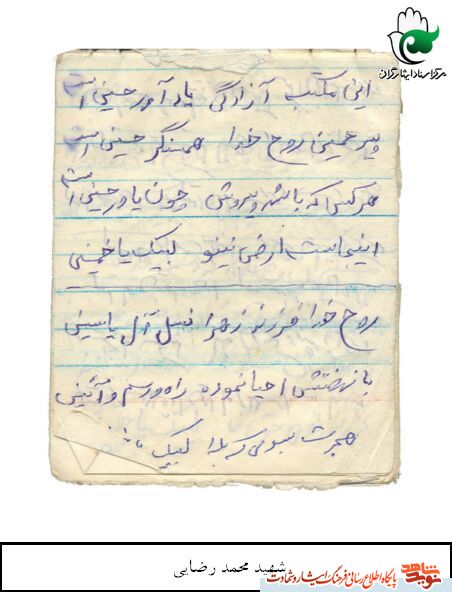 مرکز اسناد ایثارگران
این مکتب آزادگی یادآور حسینی است
پیر خمینی روح خدا همسنگر حسینی است
هر کس که باشد پیروش چون یاور حسینی است
اینجاست ارض نینوا لبیک یا خمینی
روح خدا فرزند زهرا نسل آل یاسینی
با نهضتش احیا نموده راه و رسم و آئینی
هجرت سوی کربلا لبیک
شهید محمد رضایی
نوید شاهد پایگاه اطلاع رسانی فرهنگ ایثار و شهادت